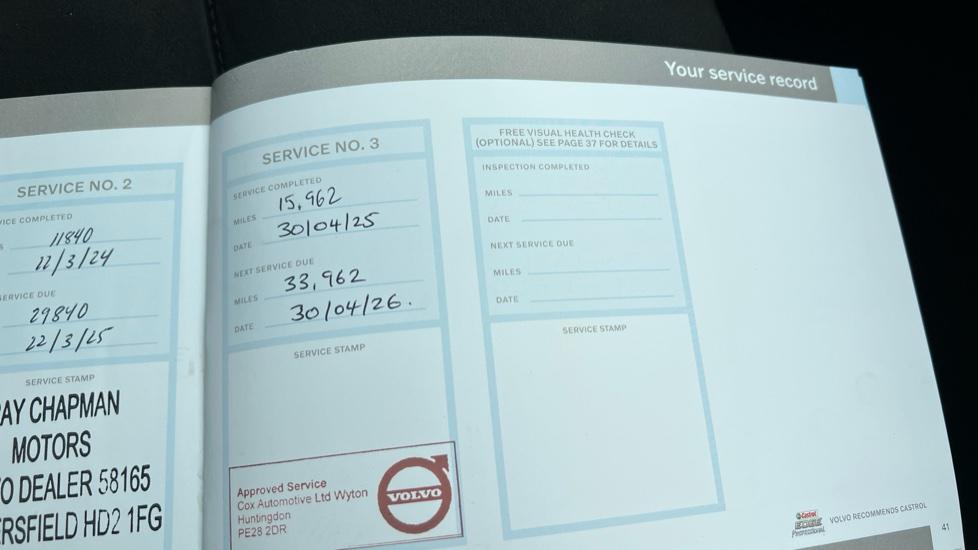 Your service record
SERVICE NO. 2
COMPLETED
11840
22/3/24
SERVICE DUE
29840
22/3/25
SERVICE STAMP
CHAPMAN
MOTORS
DEALER 58165
HD2 1FG
SERVICE NO. 3
SERVICE COMPLETED
MILES 15,962
DATE 30/04/25
NEXT SERVICE DUE
MILES 33,962
DATE 30/04/26.
SERVICE STAMP
Approved Service
Cox Automotive Ltd Wyton
Huntingdon
PE28 2DR
VOLVO
FREE VISUAL HEALTH CHECK
(OPTIONAL) SEE PAGE 37 FOR DETAILS
INSPECTION COMPLETED
MILES
DATE
NEXT SERVICE DUE
MILES
DATE
SERVICE STAMP
Castrol
EDGE
Professional
VOLVO RECOMMENDS CASTROL
41